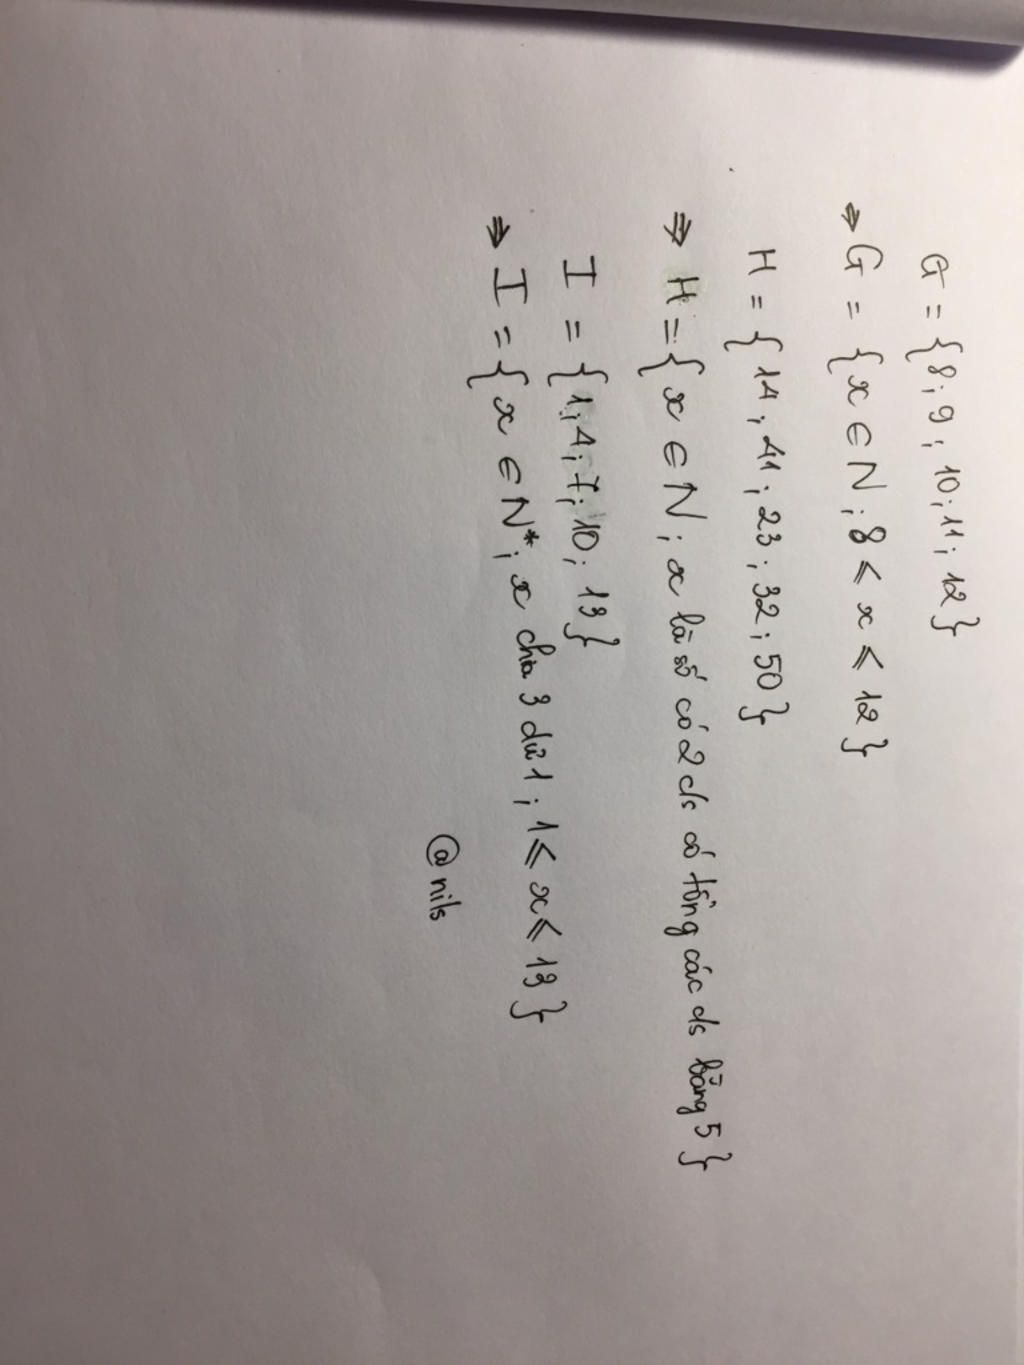 G = {8; 9; 10; 11; 12}
⇒ G = {x ∈ N; 8 ⩽ x ⩽ 12}
H = {14; 41; 23; 32; 50}
⇒ H = {x ∈ N; x là số có 2 ds có tổng các ds bằng 5}
I = {1; 4; 7; 10; 13}
⇒ I = {x ∈ N*; x chia 3 dư 1; 1 ⩽ x ⩽ 13}
@nils